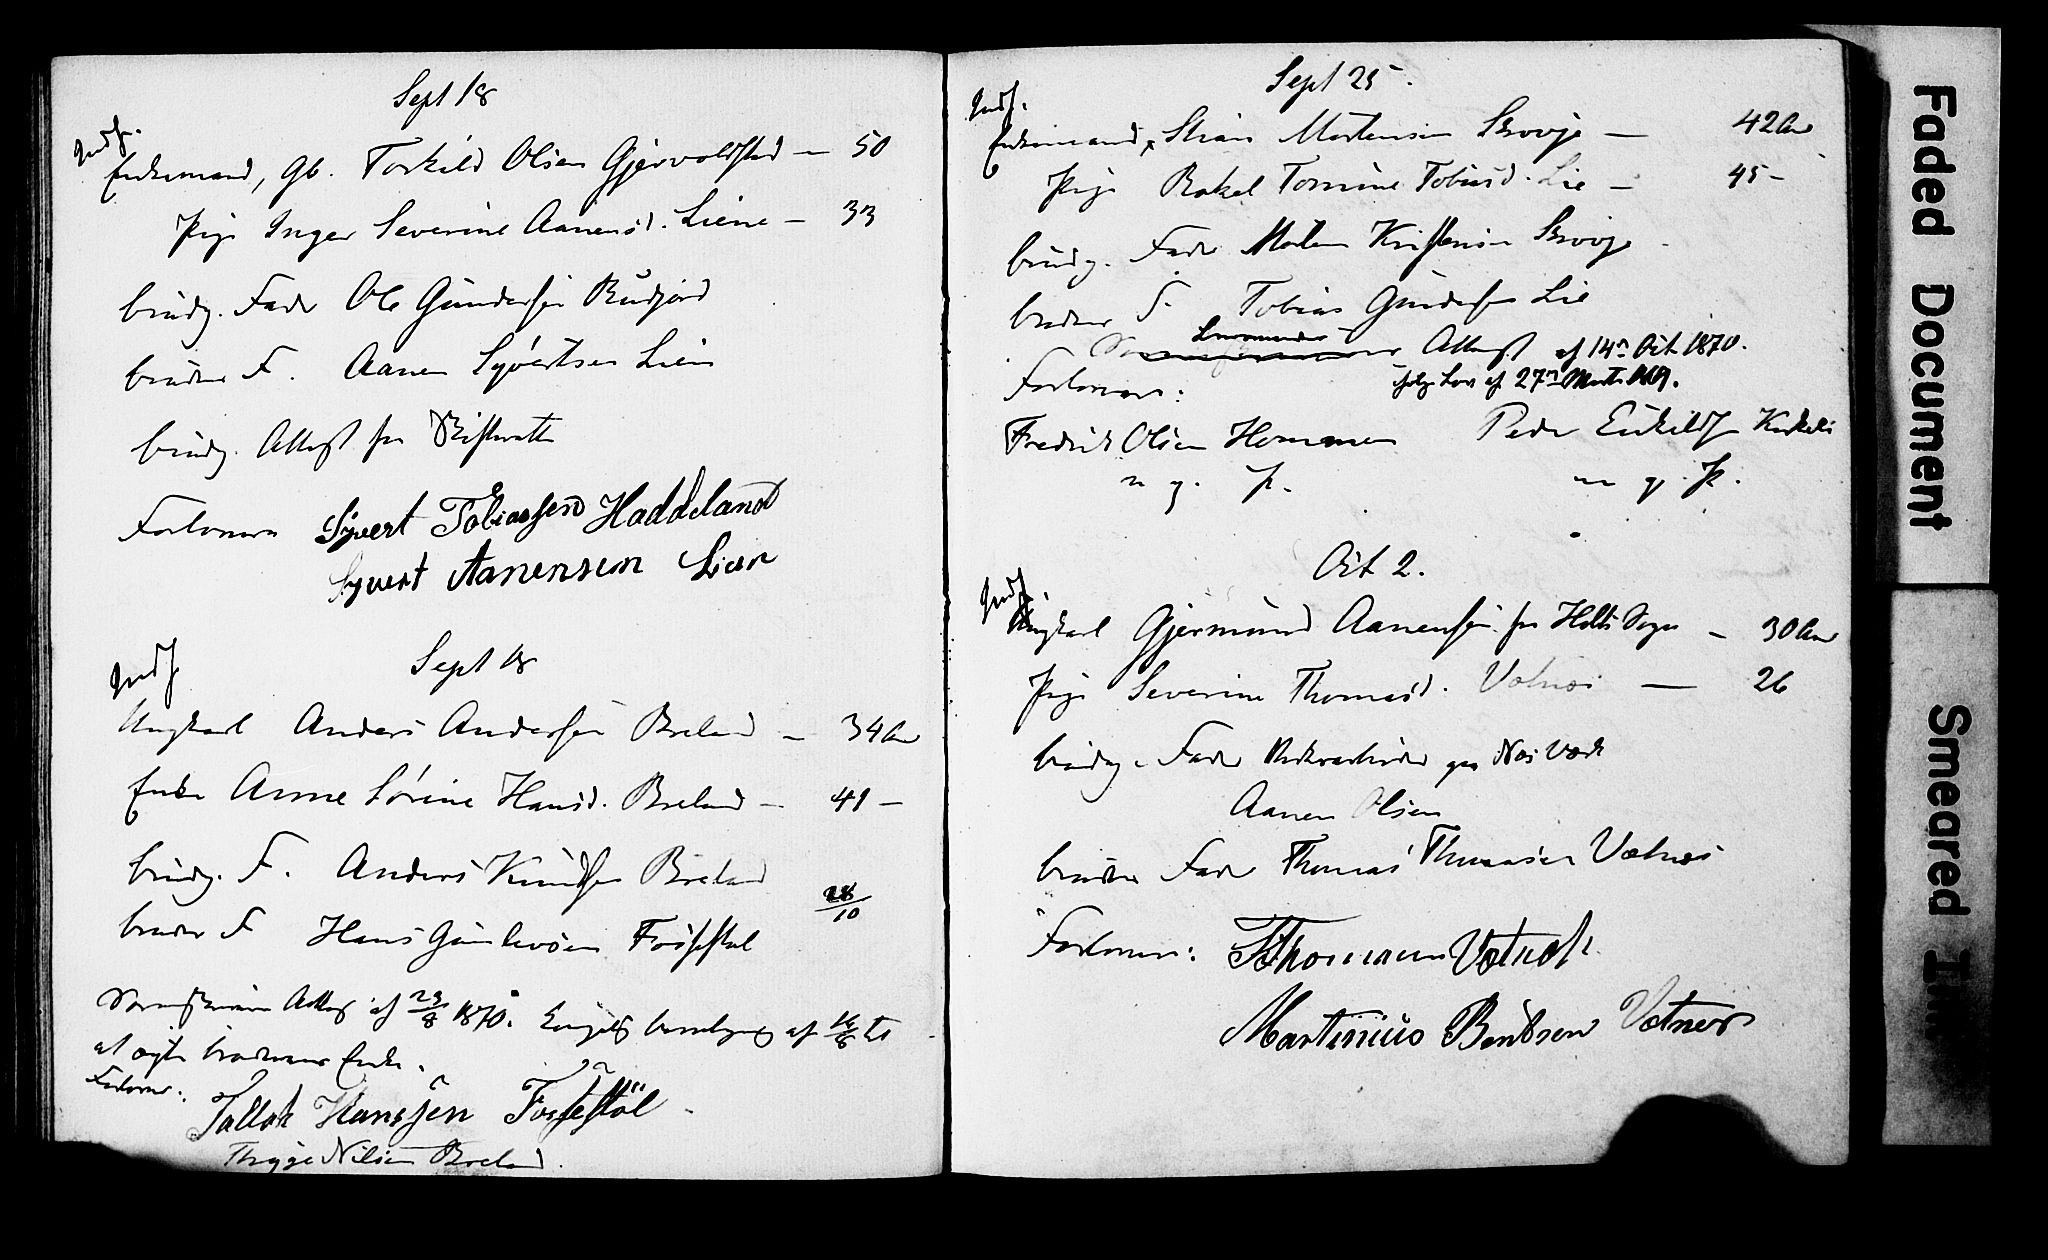 Sept 18
Indf.
Enkemand, Gb. Torkild Olsen Gjervoldstad — 50
Pige Inger Severine Aanensd. Liene — 33
brudg. Fader Ole Gundersen Rudjord
brudens F. Aanen Syvertsen Lien
brudg. Attest fra Skifteretten
Forlovere Syvert Tobiassen Haddeland
Syvert Aanensen Lien
Sept 18
Indf
Ungkarl Anders Andersen Breland — 34 Aar
Enke Anne Sørine Hansd. Breland — 41 —
brudg. F. Anders Knudsen Breland
28/10
bruden F Hans Gunlevsen Fossestøl
Attest af 23/8 1870. af 16/8 til
at ægte Enke.
Forlovere:
Tallak Hanssen Fosfestøl
Trygge Nilsen Breland.
Sept 25.
Indf.
Enkemand, Stian Mortensen Skovje — 42 Aar
Pige Rakel Tomine Tobiasd. Lie — 45 —
brudg. Fader Morten Kristensen Skovje
brudens F. Tobias Gundersen Lie
Attest af 14de Oct. 1870.
ifølge Lov af 27de Marts 1869.
Forlovere:
Fredrik Olsen Hommen Peder Eskilds Kirkelie
m. g. P. m. g. P.
Oct 2.
Indf.
Ungkarl Gjermund Aanensen fra Holts Sogn — 30 Aar
Pige Severine Thomasd. Vatnes — 26
brudg. Fader paa Næs Værk
Aanen Olsen
brudens Fader Thomas Thomassen Vatnes
Forlovere: Thomas Vatnes
Martinius Bentsen Vatnes
Faded Document
Smeared Ink